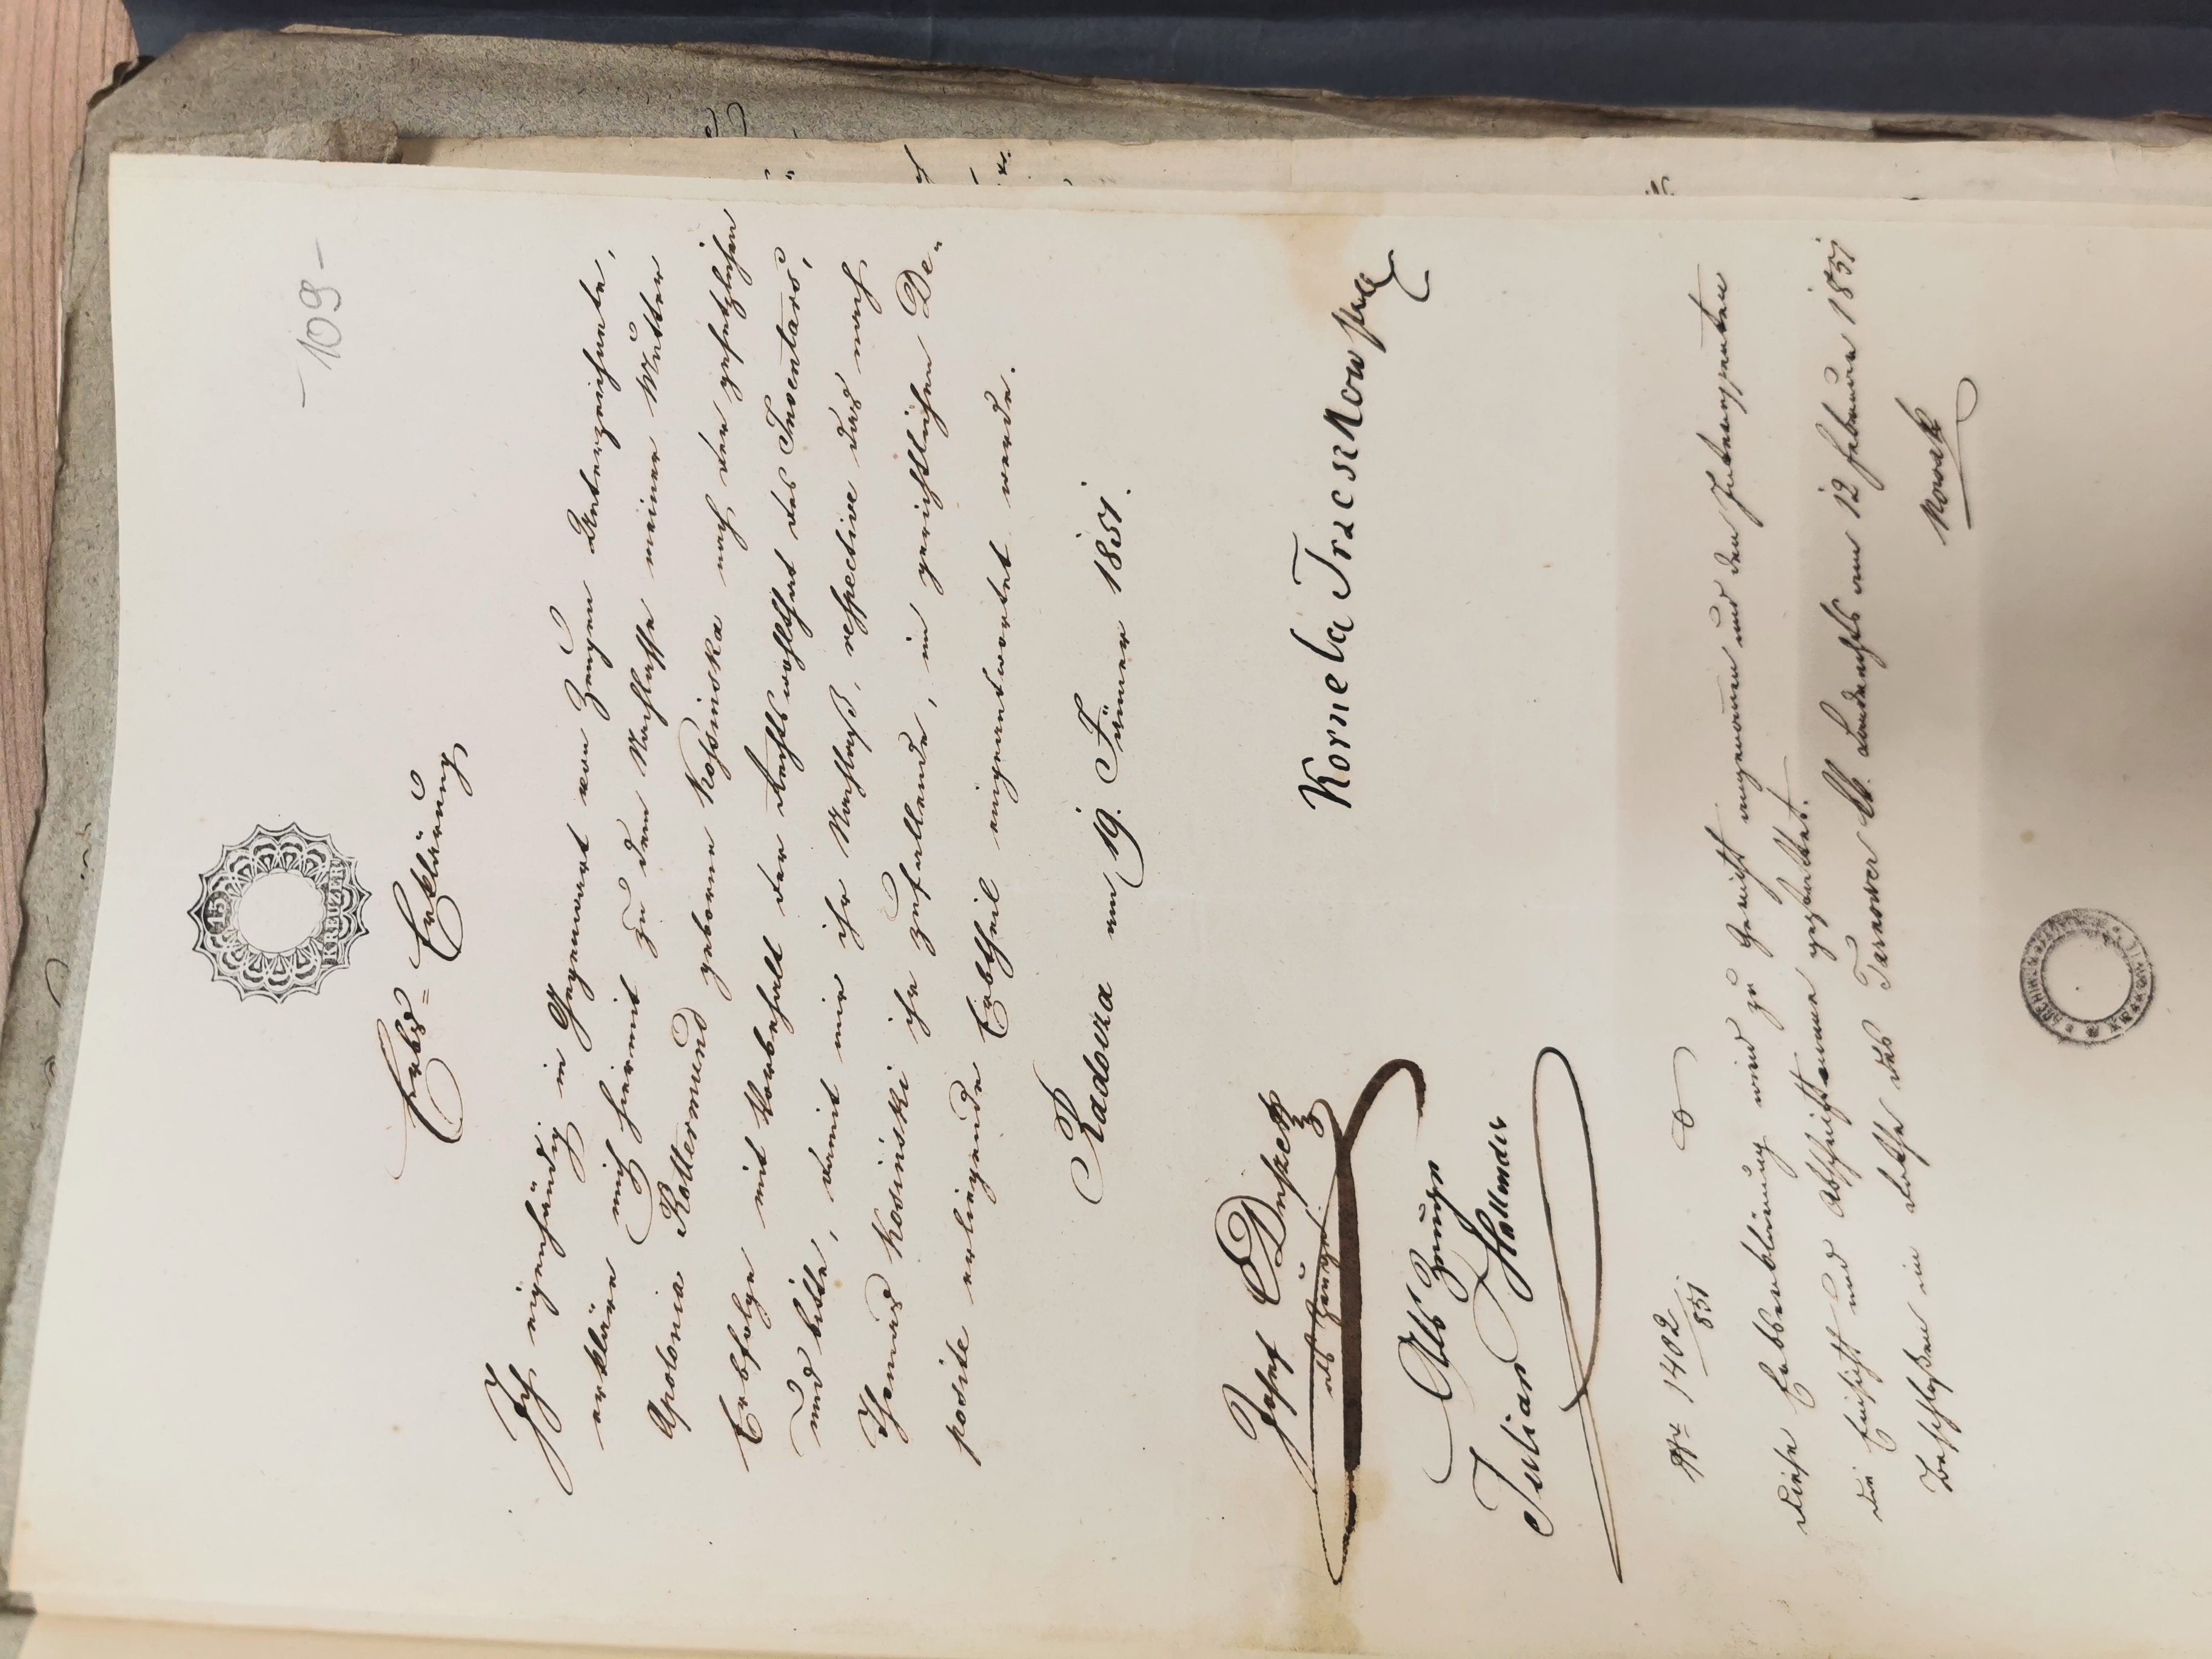 - 109 -
15
KREUZER
Erbs=Erklärung
Ich eigenhändig in Gegenwart von Zeugen Unterzeichnete,
erkläre mich hiermit zu dem Nachlasse meiner Mutter
Apolonia Rottermund geborne Kossinska nach der gesetzlichen
Erbfolge mit Vorbehalt der Rechtswohlthat des Inventars,
und bitte, damit mir ihr Nachlaß, respective das nach
Thomas Kosinski ihr zufallende, im gerichtlichen De-
posite erliegende Erbtheil eingeantwortet werde.
Radowza am 19. Jänner 1851.
Kornela
Josef
als Zeuge
Als Zeuge
Julian Hollender
1402/851
Diese Erbserklärung wird zu Gericht angenommen und den Interessenten
die Einsicht und Abschriftname gestattet.
Beschlossen im Rathe des Tarnower Landrechts am 12 Februar 1851
Nowak